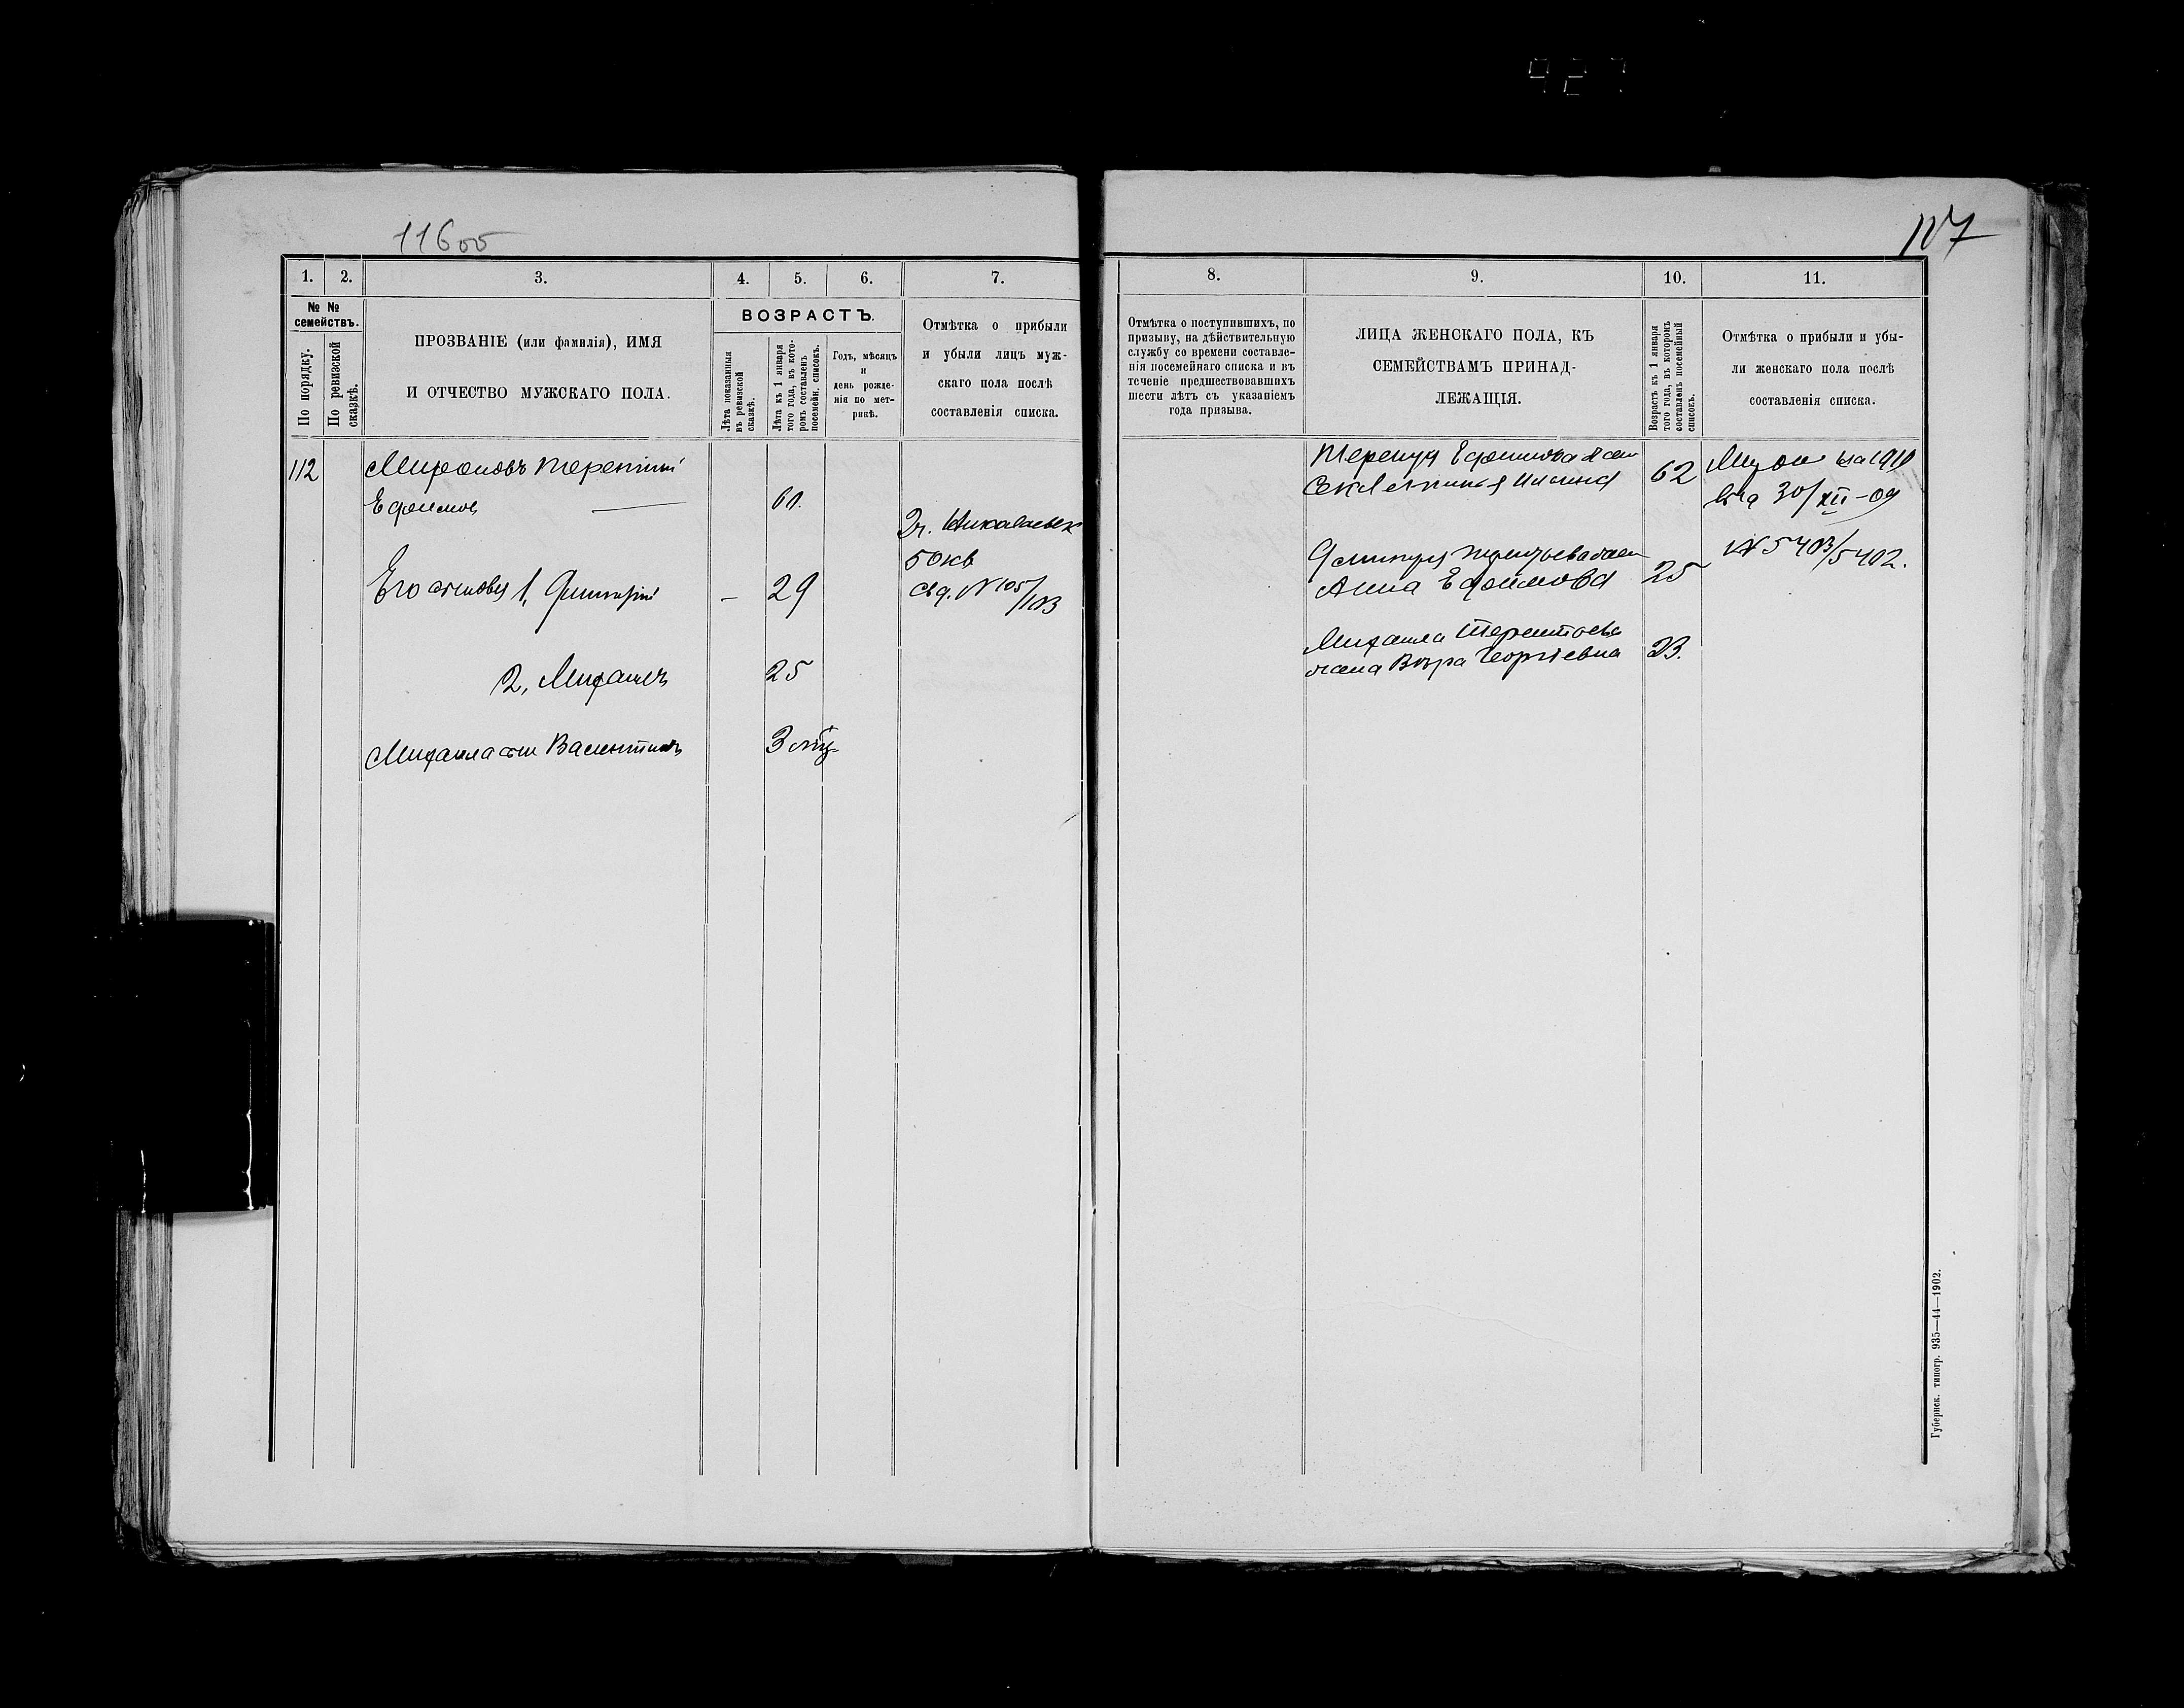 11600
107
1.
2.
3.
4.
5.
6.
7.
8.
9.
10.
11.
№ №
семействъ.
По порядку.
По ревизской
сказкѣ.
ПРОЗВАНІЕ (или фамилія), ИМЯ
И ОТЧЕСТВО МУЖСКАГО ПОЛА.
ВОЗРАСТЪ.
Лѣта показанныя
въ ревизской
сказкѣ.
Лѣта къ 1 января
того года, въ кото-
ромъ составленъ
посемейн. списокъ.
Годъ, мѣсяцъ
и
день рожде-
нія по мет-
рикѣ.
Отмѣтка о прибыли
и убыли лицъ муж-
скаго пола послѣ
составленія списка.
Отмѣтка о поступившихъ, по
призыву, на дѣйствительную
службу со времени составле-
нія посемейнаго списка и въ
теченіе предшествовавшихъ
шести лѣтъ съ указаніемъ
года призыва.
ЛИЦА ЖЕНСКАГО ПОЛА, КЪ
СЕМЕЙСТВАМЪ ПРИНАД-
ЛЕЖАЩІЯ.
Возрастъ къ 1 января
того года, въ которомъ
составленъ посемейный
списокъ.
Отмѣтка о прибыли и убы-
ли женскаго пола послѣ
составленія списка.
112
Мироновъ Терентій
Ефимов
60.
Его сыновья 1, Дмитрій
– 29
2, Михаилъ
25
Михаила сын Валентинъ
3 мѣ.
Г. Николаевск
50 кв
Свд. № 105/103
Терентія Ефимова жен
Секлетинья Ильина
62
Дмитрія Терентьева жен
Анна Ефимова
25
Михаила Терентьева
жена Вѣра Георгіевна
23.
на 1910
30/XII–09
№ 5403/5402.
Губернск. типогр. 935—44—1902.